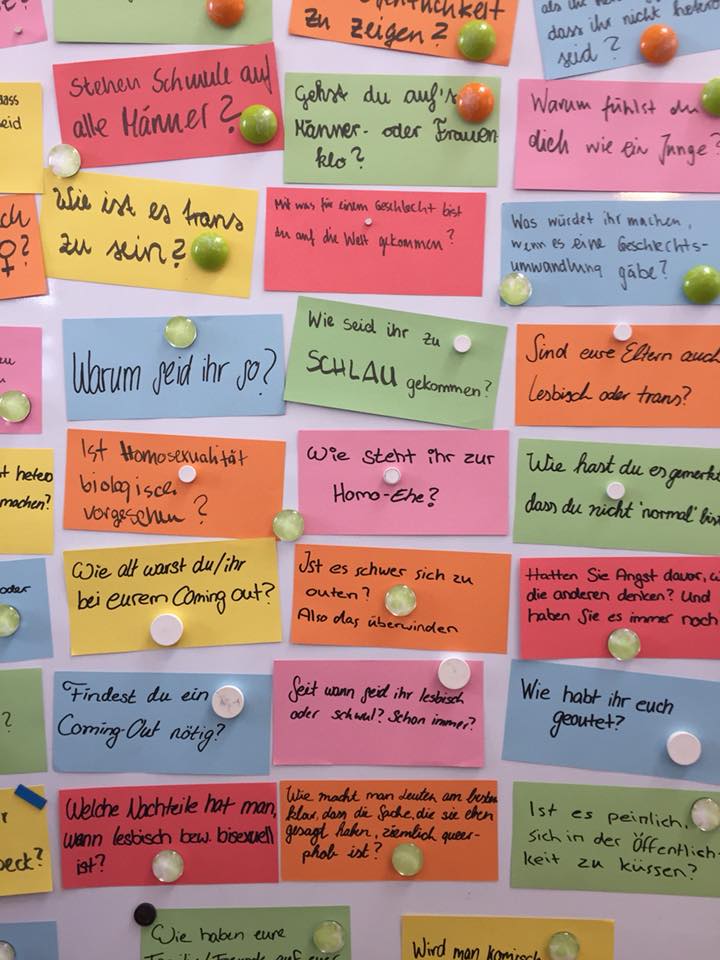 zu zeigen?
dass ihr nicht hetero
seid?
Stehen Schwule auf
alle Männer?
Gehst du auf's
Männer- oder Frauen-
klo?
Warum fühlst du
dich wie ein Junge?
Wie ist es trans
zu sein?
Mit was für einem Geschlecht bist
du auf die Welt gekommen?
Was würdet ihr machen,
wenn es eine Geschlechts-
umwandlung gäbe?
♀?
Warum seid ihr so?
Wie seid ihr zu
SCHLAU gekommen?
Sind eure Eltern auch
lesbisch oder trans?
Ist Homosexualität
biologisch
vorgesehen?
Wie steht ihr zur
Homo-Ehe?
Wie hast du es gemerkt
dass du nicht 'normal' bist
hetero
machen?
Wie alt warst du/ihr
bei eurem Coming out?
Ist es schwer sich zu
outen?
Also das überwinden
Hatten Sie Angst davor, w
die anderen denken? Und
haben Sie es immer noch
oder
Findest du ein
Coming-Out nötig?
Seit wann seid ihr lesbisch
oder schwul? Schon immer?
Wie habt ihr euch
geoutet?
?
Welche Nachteile hat man,
wann lesbisch bzw. bisexuell
ist?
Wie macht man Leuten am besten
klar, dass die Sache, die sie eben
gesagt haben, ziemlich queer-
phob ist?
Ist es peinlich,
sich in der Öffentlich-
keit zu küssen?
eck?
Wie haben eure
Wird man komisch